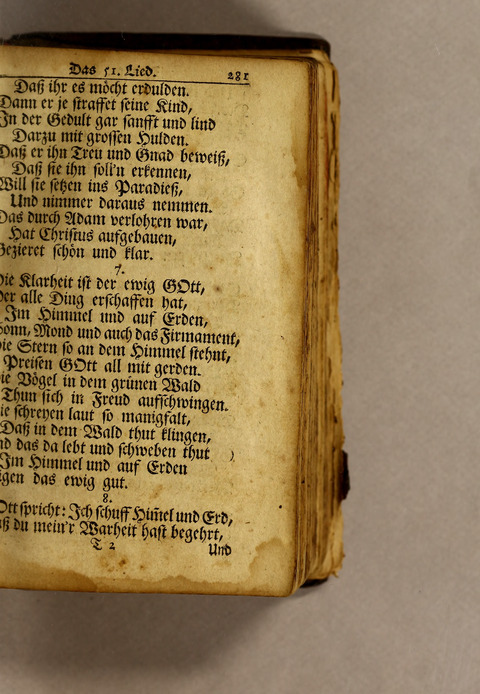 Das 51. Lied. 281
Daß ihr es möcht erdulden.
Dann er je straffet seine Kind,
In der Gedult gar sanfft und lind
Darzu mit grossen Hulden.
Daß er ihn Treu und Gnad beweiß,
Daß sie ihn soll'n erkennen,
Will sie setzen ins Paradieß,
Und nimmer daraus nemmen.
Das durch Adam verlohren war,
Hat Christus aufgebauen,
Gezieret schön und klar.
7.
Die Klarheit ist der ewig GOtt,
Der alle Ding erschaffen hat,
Im Himmel und auf Erden,
Sonn, Mond und auch das Firmament,
Die Stern so an dem Himmel stehnt,
Preisen GOtt all mit gerden.
Die Vögel in dem grünen Wald
Thun sich in Freud aufschwingen.
Sie schreyen laut so manigfalt,
Daß in dem Wald thut klingen,
Und das da lebt und schweben thut
Im Himmel und auf Erden
das ewig gut.
8.
GOtt spricht: Ich schuff Him̃el und Erd,
Daß du mein'r Warheit hast begehrt,
T 2 Und